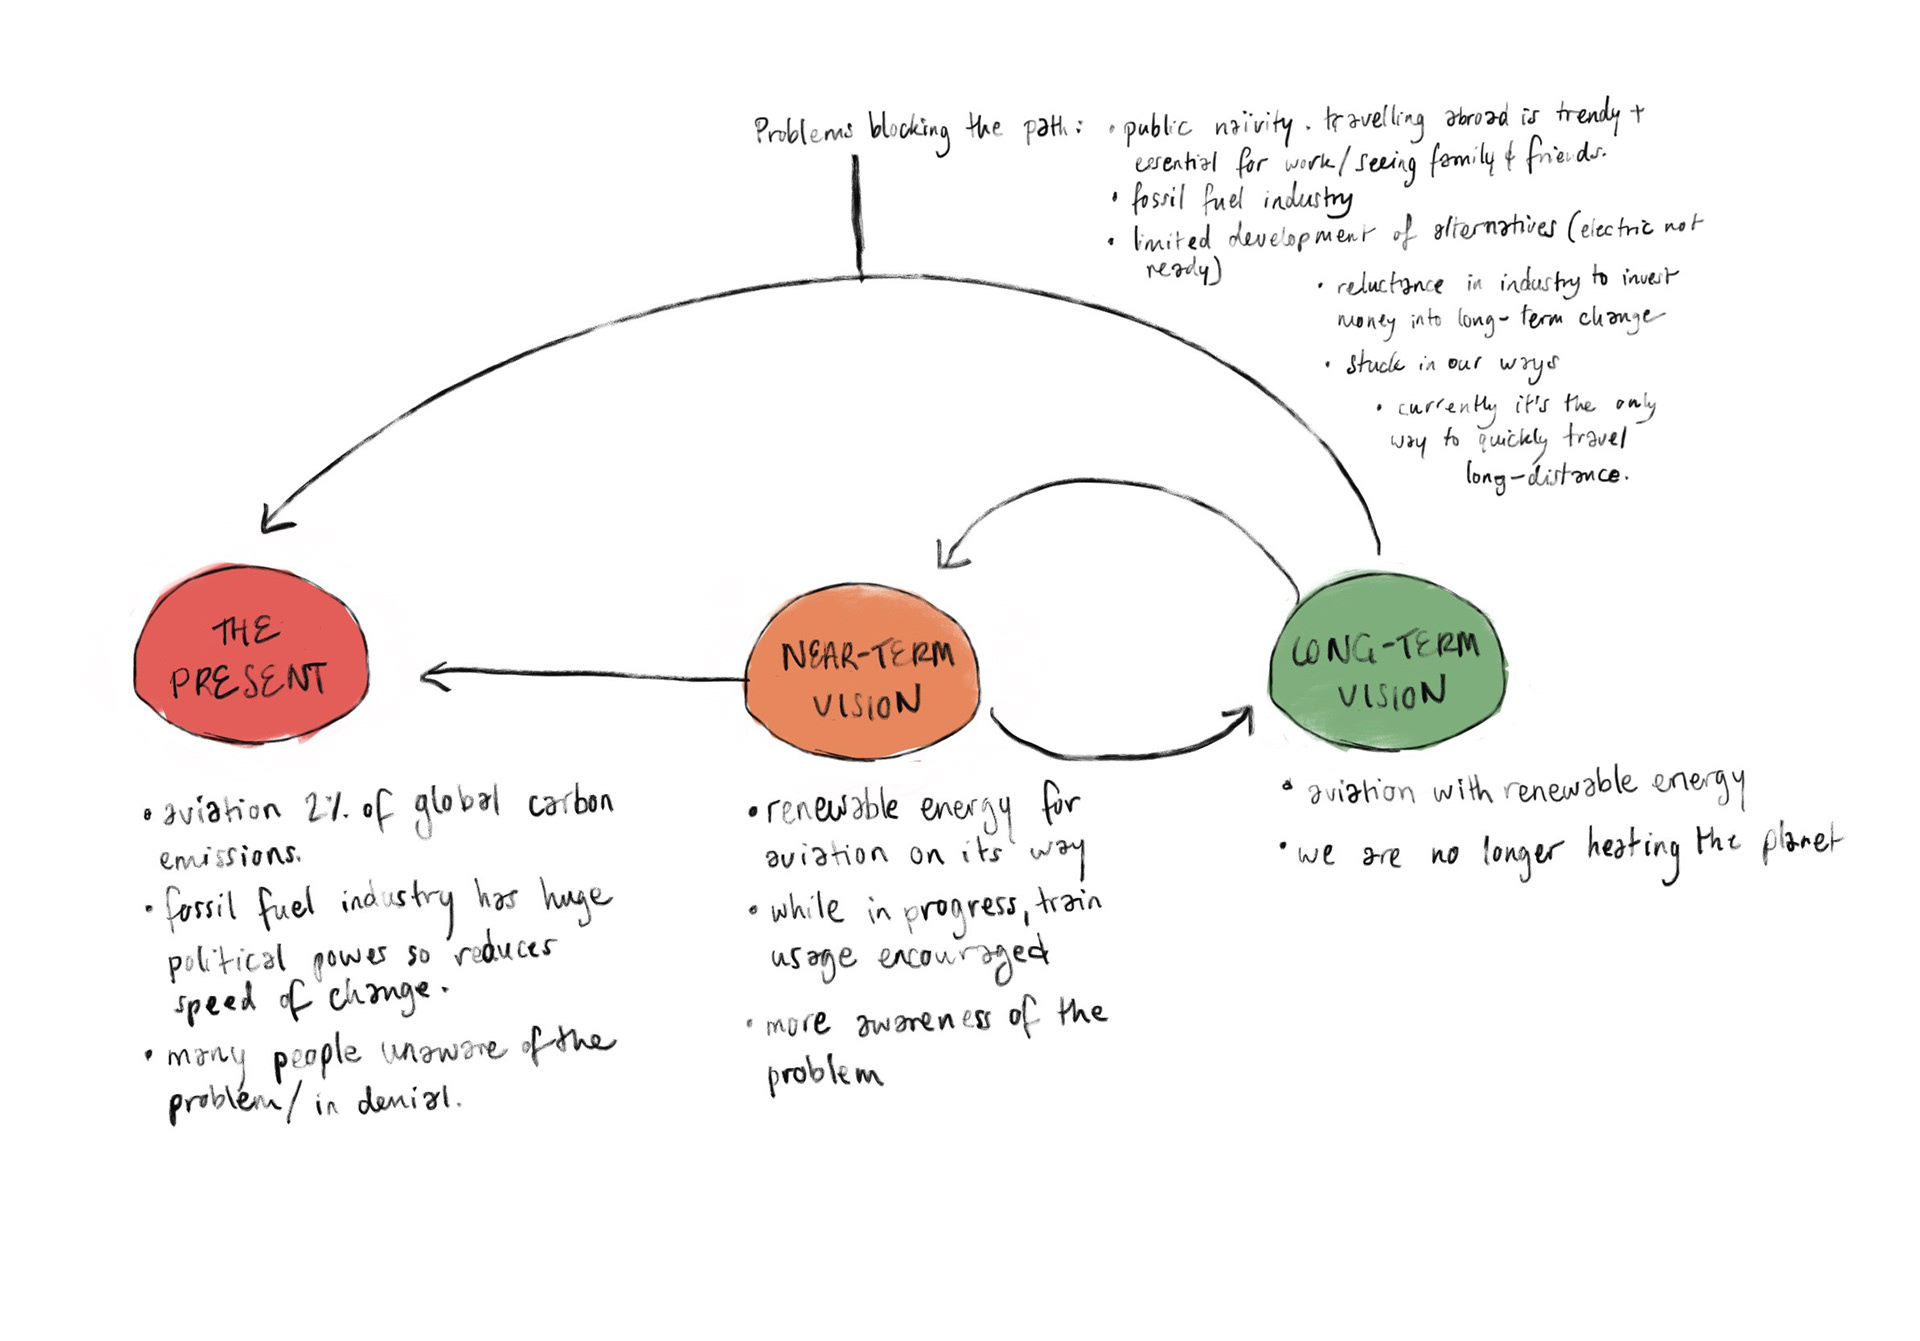 Problems blocking the path: • public naïvity. travelling abroad is trendy +
essential for work/seeing family & friends.
• fossil fuel industry
• limited development of alternatives (electric not
ready)
• reluctance in industry to invest
money into long-term change
• stuck in our ways
• currently it's the only
way to quickly travel
long-distance.
THE
PRESENT
NEAR-TERM
VISION
LONG-TERM
VISION
• aviation 2% of global carbon
emissions.
• fossil fuel industry has huge
political power so reduces
speed of change.
• many people unaware of the
problem/ in denial.
• renewable energy for
aviation on its way
• while in progress, train
usage encouraged
• more awareness of the
problem
• aviation with renewable energy
• we are no longer heating the planet